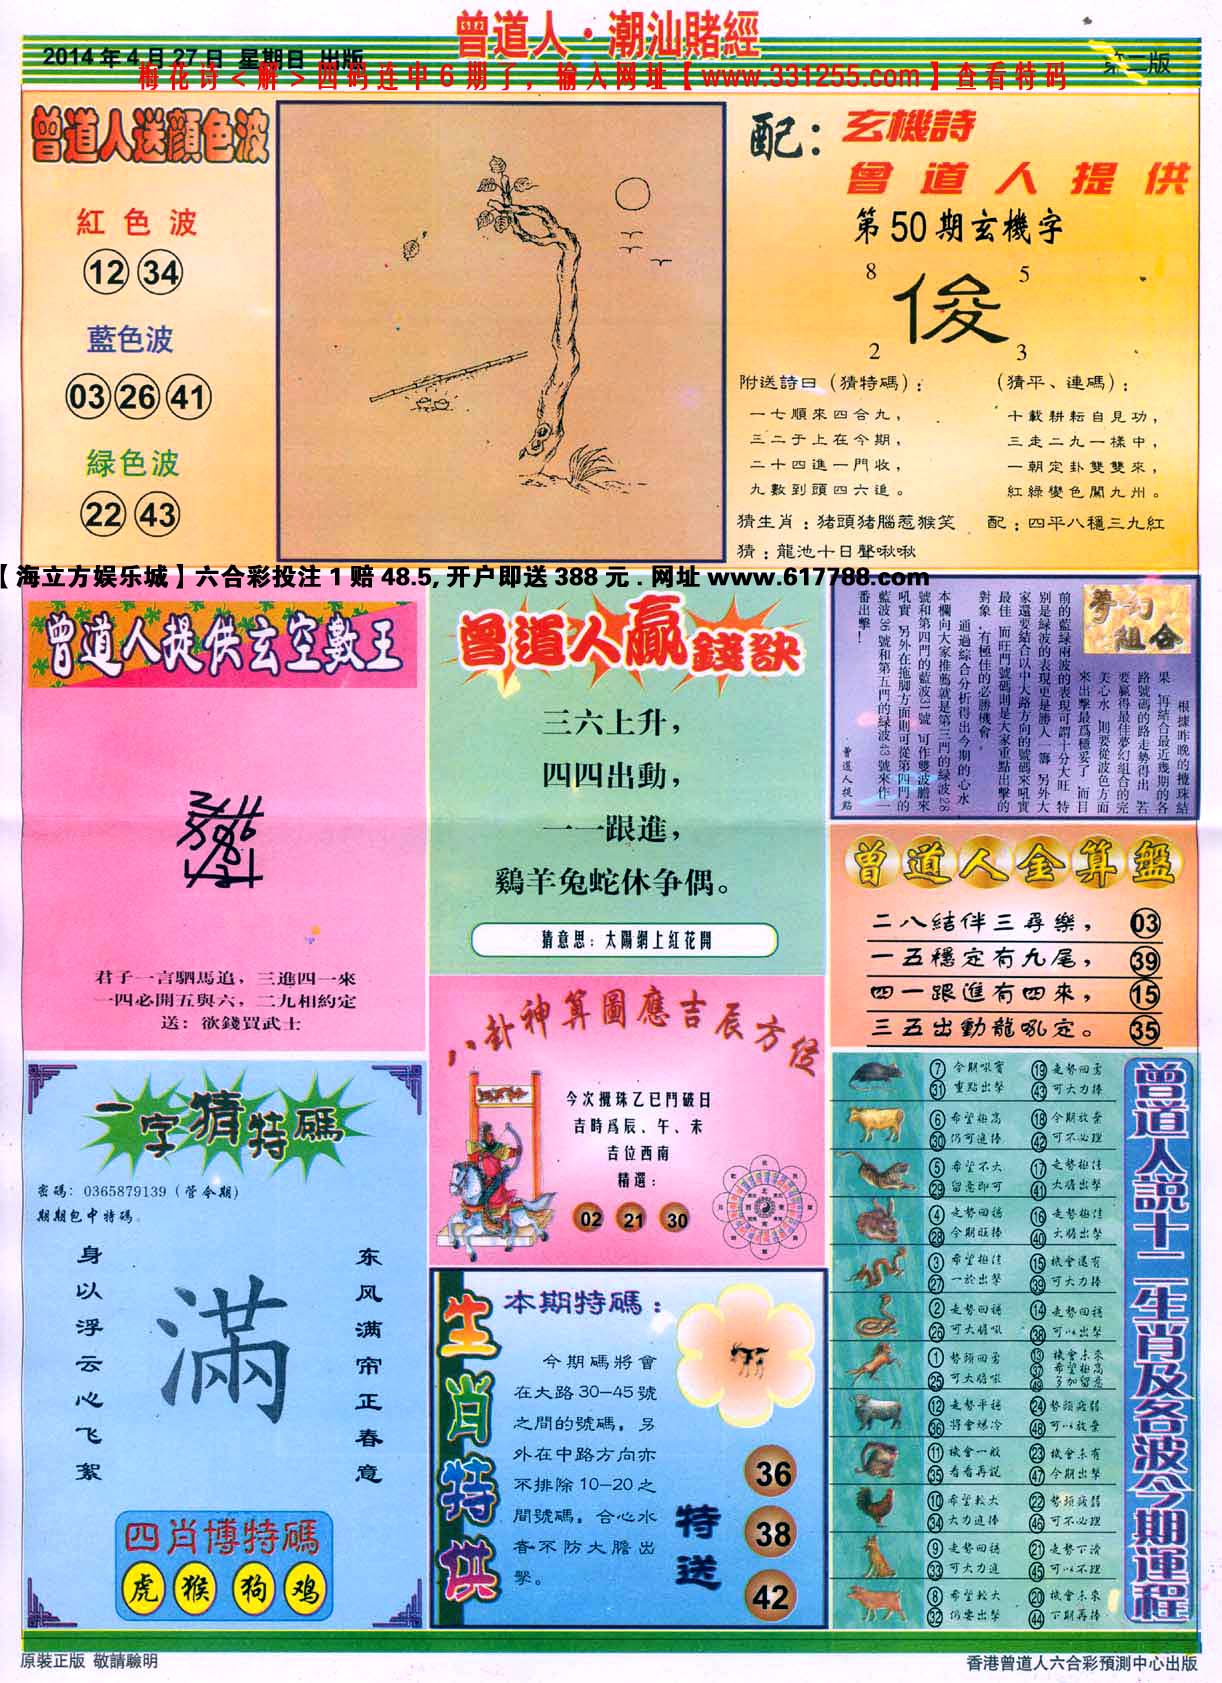 曾道人·潮汕賭經
2014年4月27日 星期日 出版
第二版
梅花诗<解>四码连中6期了，输入网址【www.331255.com】查看特码
曾道人送顏色波
紅色波
12 34
藍色波
03 26 41
綠色波
22 43
配：玄機詩
曾道人提供
第50期玄機字
8 5
俊
2 3
附送詩曰（猜特碼）：
一七順來四合九，
三二于上在今期，
二十四進一門收，
九數到頭四六追。
（猜平、連碼）：
十載耕耘自見功，
三走二九一樣中，
一朝定卦雙雙來，
紅綠變色闖九州。
猜生肖：猪頭猪腦惹猴笑
配：四平八穩三九紅
猜：龍池十日聲啾啾
【海立方娱乐城】六合彩投注1赔48.5,开户即送388元.网址www.617788.com
曾道人提供玄空數王
君子一言駟馬追，三進四一來
一四必開五與六，二九相約定
送：欲錢買武士
曾道人贏錢訣
三六上升，
四四出動，
一一跟進，
鷄羊兔蛇休争偶。
猜意思：太陽網上紅花開
夢幻組合
根據昨晚的攪珠結
果，再結合最近幾期的各
路號碼的路走勢得出，若
要贏得最佳夢幻組合的完
美心水，則要從波色方面
來出擊最爲穩妥了，而目
前的藍綠兩波的表現可謂十分大旺，特
别是綠波的表現更是勝人一籌，另外大
家還要結合以中大路方向的號碼來吼實
最佳，而旺門號碼則是大家重點出擊的
對象，有極佳的必勝機會。
通過綜合分析得出今期的心水
本欄向大家推薦就是第三門的綠波28
號和第四門的藍波31號，可作雙波膽來
吼實，另外在拖脚方面則可從第四門的
藍波36號和第五門的綠波43號來作一
番出擊！
曾道人提點
曾道人金算盤
二八結伴三尋樂， 03
一五穩定有九尾， 39
四一跟進有四來， 15
三五出動龍吼定。 35
八卦神算圖應吉辰方位
今次攪珠乙巳鬥破日
吉時爲辰、午、未
吉位西南
精選：
02 21 30
一字猜特碼
密碼：0365879139（管今期）
期期包中特碼。
身以浮云心飞絮
滿
东风满帘正春意
四肖博特碼
虎 猴 狗 鸡
生肖特供
本期特碼：
今期碼將會
在大路30—45號
之間的號碼，另
外在中路方向亦
不排除10—20之
間號碼，合心水
者不防大膽出
擊。
特送
36
38
42
曾道人説十二生肖及各波今期運程
7 今期吼實 19 走勢回勇
31 重點出擊 43 可大力捧
6 希望極高 18 今期放棄
30 仍可追捧 42 可不必理
5 希望不大 17 走勢極佳
29 留意即可 41 大膽出擊
4 走勢回穩 16 走勢極佳
28 今期旺捧 40 大膽出擊
3 希望極佳 15 機會還有
27 一於出擊 39 可大力捧
2 走勢回穩 14 走勢回穩
26 可大膽吼 38 可以出擊
1 勢頭回勇 13 機會未來
25 可大膽吼 37 希望極高
49 多加留意
12 走勢平穩 24 勢頭疲弱
36 將會爆冷 48 可以放棄
11 機會一般 23 機會未有
35 看看再説 47 今期出擊
10 希望較大 22 勢頭疲弱
34 大力追捧 46 可不必理
9 走勢回穩 21 走勢下滑
33 可大力追 45 可以不理
8 希望較大 20 機會未來
32 仍要出擊 44 下期再捧
原裝正版 敬請驗明
香港曾道人六合彩預測中心出版